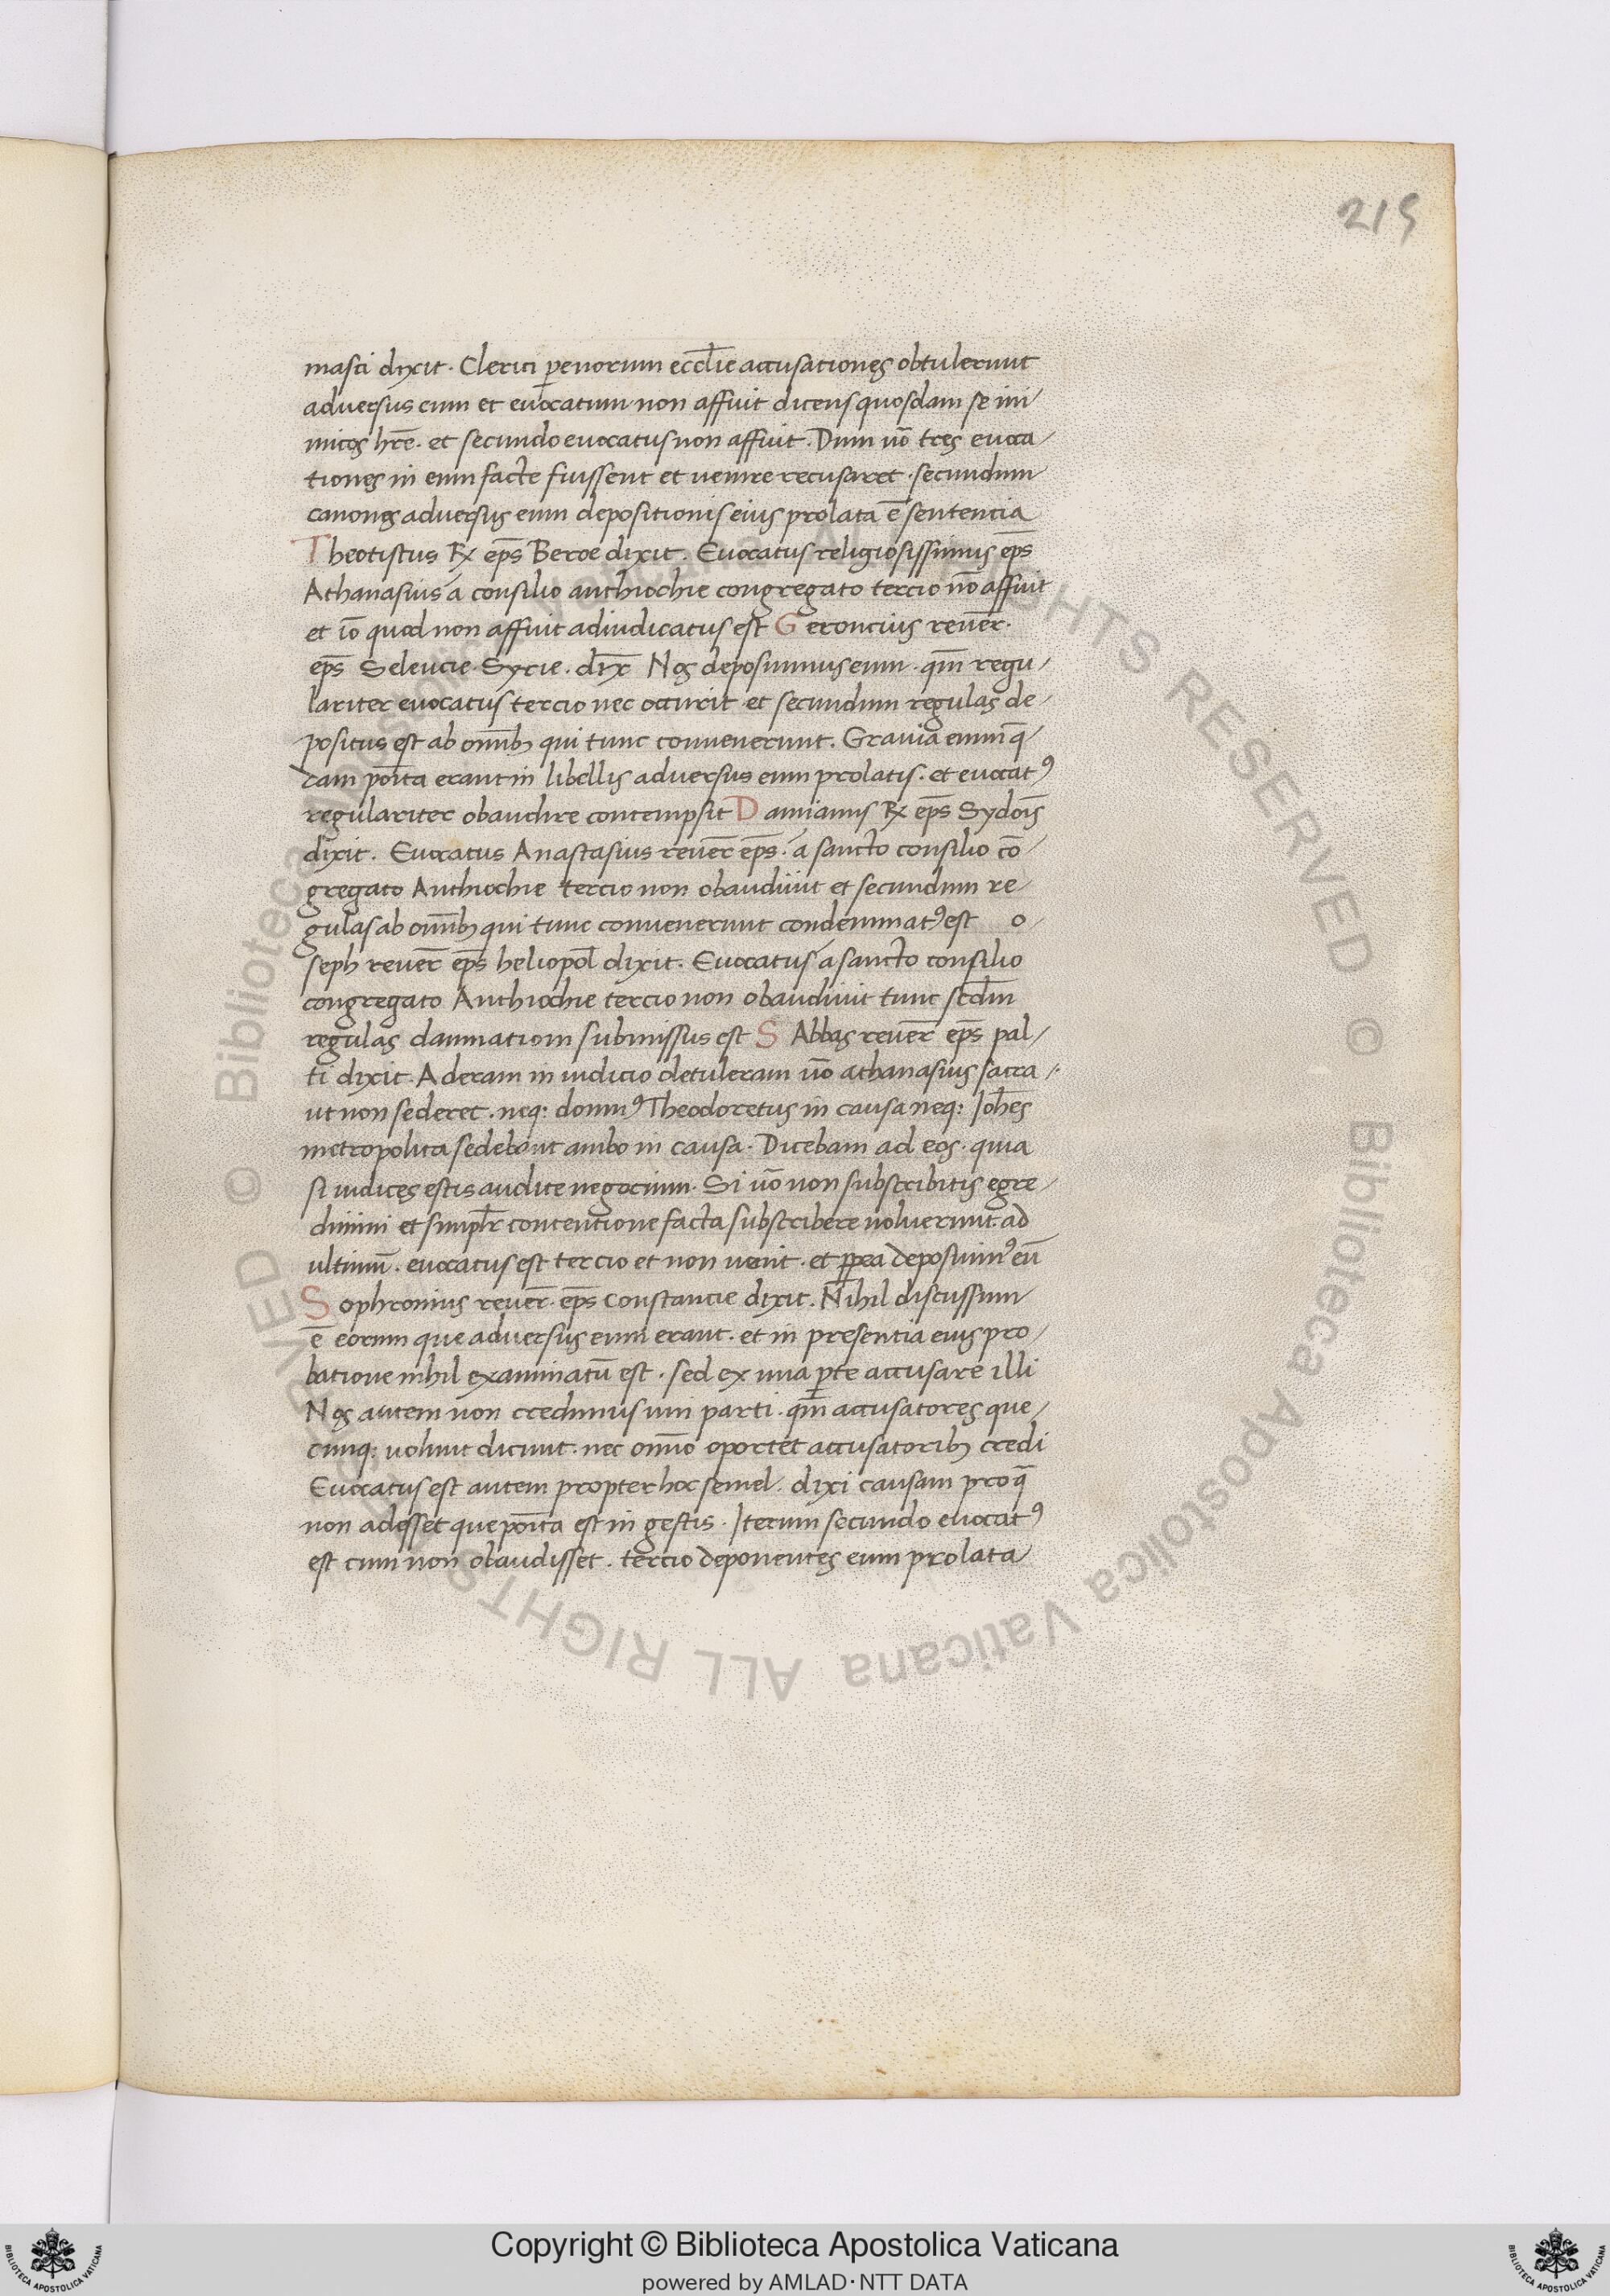 215
masci dixit. Clerici penorum eccl̄ie accusationes obtulerunt
adversus eum et evocatum non affuit dicens quosdam se ini/
micos hr̄e. et secundo evocatus non affuit. Dum uō tres evoca/
tiones in eum facte fuissent et venire recusaret. secundum
canones adversus eum depositionis eius prolata ē sentencia
Theotistus R̶ ep̄s Beroe dixit. Evocatus religiosissimus ep̄s
Athanasius a consilio anthiochie congregato tercio nō affuit
et iō quod non affuit adiudicatus est Geroncius reuer̄.
ep̄s Seleucie Syrie. dix̄ Nos deposuimus eum. qm̄ regu/
lariter evocatus tercio nec occurit et secundum regulas de/
positus est ab omīb; qui tunc convenerunt. Gravia enim q̄/
dam poīta erant in libellis adversus eum prolatis. et evocatꝰ
regulariter obaudire contempsit Damianus R̶ ep̄s Sydoīs
dixit. Evocatus Anastasius reuer̄ ep̄s. a sancto consilio cō/
gregato Anthiochie tercio non obaudiuit et secundum re/
gulas ab omīb; qui tunc convenerunt condemnatꝰ est o/
seph reuer̄ ep̄s heliopol̄ dixit. Evocatus a sancto consilio
congregato Anthiochie tercio non obaudiuit tunc scd̄m
regulas damnationi submissus est S Abbas reuer̄ ep̄s pal/
ti dixit. Aderam in iudicio detuleram uō athanasius sacra/
ut non sederet. neq: domnꝰ Theodoretus in causa neq: Joh̄es
metropolita sedebant ambo in causa. Dicebam ad eos. quia
si iudices estis audite negocium. Si uō non subscribitis egre/
dimini et simpl̄r contentione facta subscribere uoluerunt. ad
ultimū. evocatus est tercio et non uenit. et ꝓpea deposuimꝰ eū
Sophronius reuer̄. ep̄s constancie dixit. Nihil discussum
ē eorum que adversus eum erant. et in presentia eius pro/
batione nihil examinatū est. sed ex una ꝑte accusare illi
Nos autem non credimus uni parti. qm̄ accusatores que/
cunq: uolunt dicunt. nec omīo oportet accusatorib; credi
Evocatus est autem propter hoc semel. dixi causam pro q̄
non adesset que poīta est in gestis. Iterum secundo evocatꝰ
est cum non obaudisset. tercio deponentes eum prolata
© Biblioteca Apostolica Vaticana ALL RIGHTS RESERVED © Biblioteca Apostolica Vaticana ALL RIGHTS RESERVED
Copyright © Biblioteca Apostolica Vaticana
powered by AMLAD·NTT DATA
BIBLIOTECA APOSTOLICA VATICANA
BIBLIOTECA APOSTOLICA VATICANA